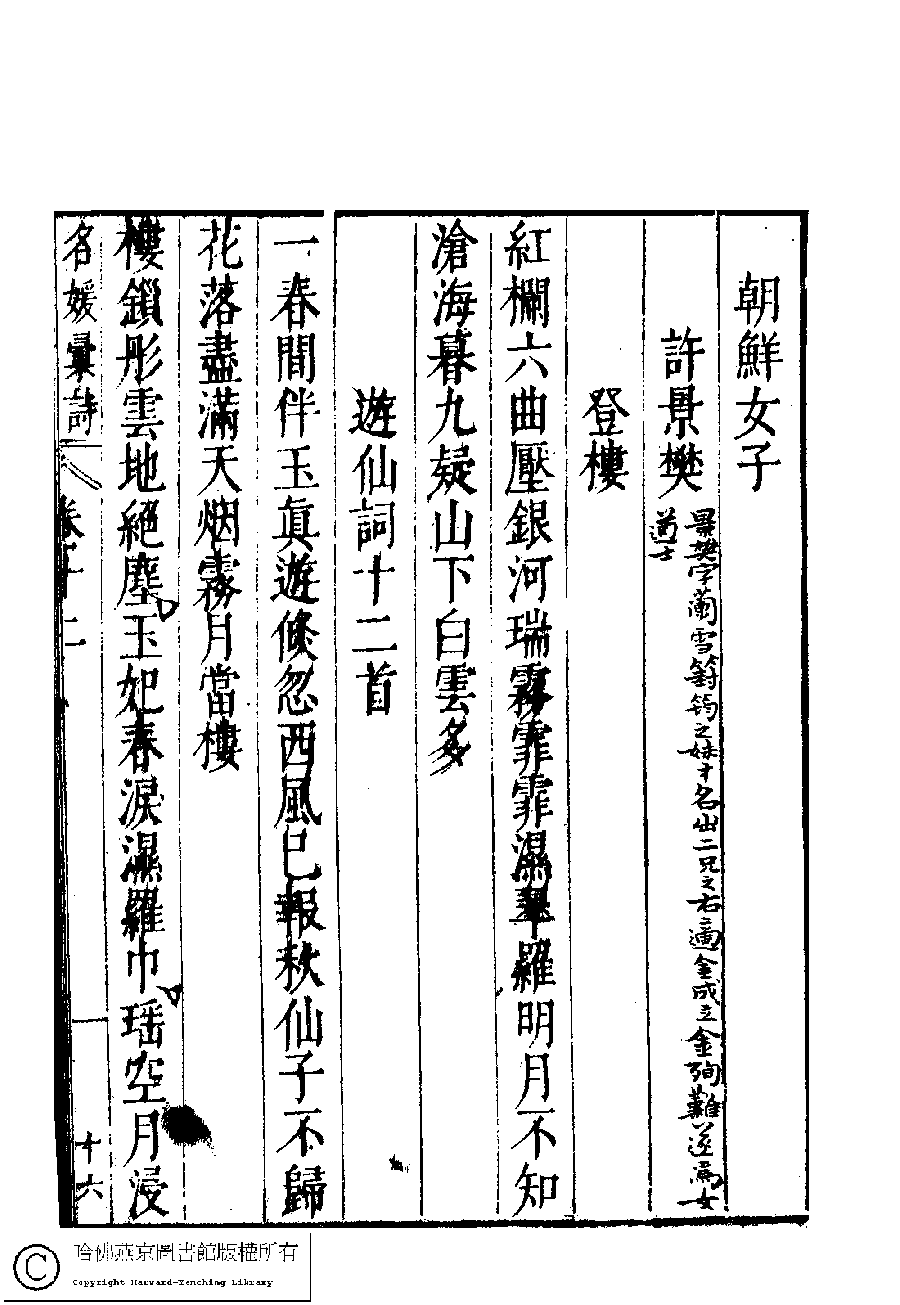 朝鮮女子
許景樊
景樊字蘭雪篈筠之妹才名出二兄之右適金成立金殉難遂爲女
道士
登樓
紅欄六曲壓銀河瑞霧霏霏濕翠羅明月不知
滄海暮九疑山下白雲多
遊仙詞十二首
一春間伴玉眞遊倐忽西風已報秋仙子不歸
花落盡滿天烟霧月當樓
樓鎖彤雲地絕塵玉妃春淚濕羅巾瑶空月浸
名媛彙詩 卷十二 十六
哈佛燕京圖書館版權所有
Copyright Harvard-Yenching Library